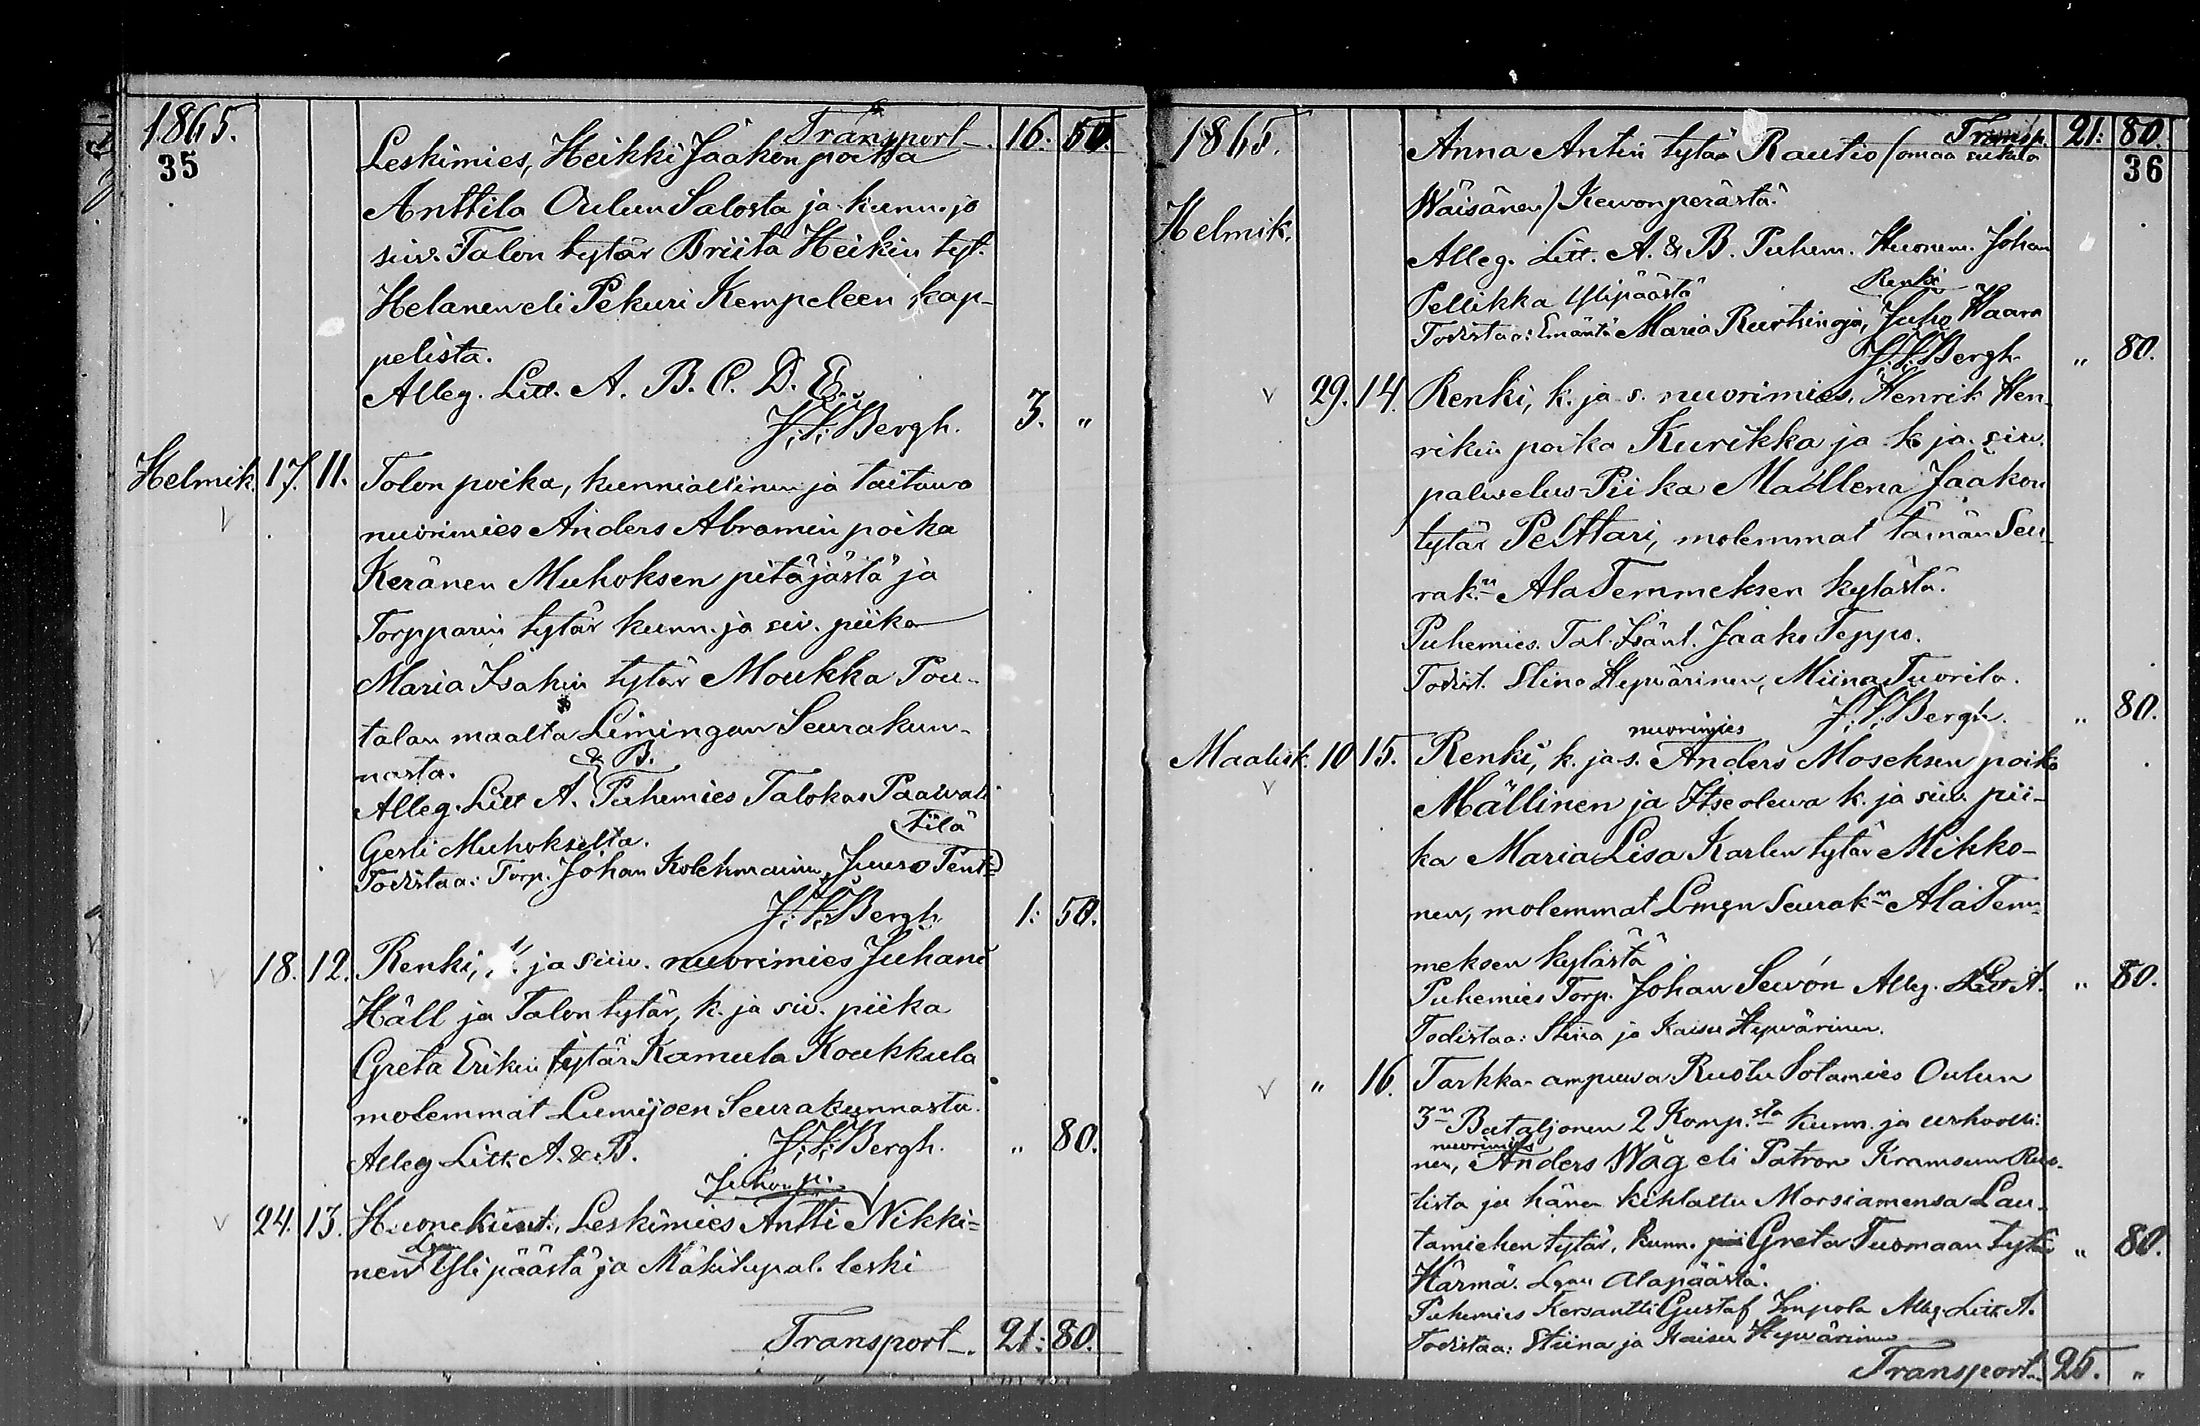 1865.
35
Transport 16: 50.
Leskimies, Heikki Jaakon poika
Anttila Oulun Salosta ja kunn. ja
siiv. Talon tytär Briita Heikin tyt.
Helanen eli Pekuri Kempeleen kap-
pelista.
Alleg. Litt. A. B. C. D. E.
Bergh. 3. "
Helmik. 17. 11. Talon poika, kunniallinen ja taitava
nuorimies Anders Abramin poika
Keränen Muhoksen pitäjästä ja
Torpparin tytär kunn. ja siv. piika
Maria Isakin tytär Moukka Pou-
talan maalta Limingan Seurakun-
nasta.
Alleg. Litt A. & B. Puhemies Talokas Paavali
Gerli Muhokselta.
Todistaa: Torp. Johan Kolehmainen, Juuso Pentti
Tilä
Bergh 1: 50.
18. 12. Renki, k. ja siiv. nuorimies Juhani
Häll ja Talon tytär, k. ja siv. piika
Greta Erikin tytär Kamula Koukkula
molemmat Lumijoen Seurakunnasta.
Alleg Litt. A. & B. Bergh. " 80.
Juhon p.
24. 13. Leskimies Antti Nikki-
nen Lgan Ylipäästä ja Mäkitupal. leski
Transport 21: 80.
1865.
Transp. 21: 80.
36
Anna Antin tytär Rautio (omaa sukua
Wäisänen) Kewonperästä.
Helmik.
Alleg. Litt. A. & B. Puhem. Huonem. Johan
Pellikka Ylipäästä
Renki
Todistaa: Emäntä Maria Ruutsinoja, Juho Haara
Bergh " 80.
29. 14. Renki, k. ja s. nuorimies, Henrik Hen-
rikin poika Kurikka ja k. ja siw.
palwelus Piika Madlena Jaakon
tytär Pelttari, molemmat tämän Seu-
rak:n Ala Temmeksen kylästä.
Puhemies. Tal. Isänt. Jaako Teppo.
Todist. Stina Hywärinen, Miina Tuorila.
Bergh. " 80.
Maalisk. 10 15. Renki, k. ja s. nuorimies Anders Moseksen poika
Mällinen ja Itseolewa k. ja siw. pii-
ka Maria Lisa Karlen tytär Mikko-
nen, molemmat Lmgn Seurak:n Ala Tem-
meksen kylästä
Puhemies Torp. Johan Sewón Alleg. Litt A. " 80.
Todistaa: Stina ja Kaisu Hywärinen.
" 16. Tarkka-ampuwa Ruotu Sotamies Oulun
3:n Bataljonen 2 Komp:sta kunn. ja urhoolli-
nen, nuorimies Anders Wäg eli Patron Kramsun Ruo-
tista ja hänen kihlattu Morsiamensa Lau-
tamiehen tytär, kunn. Greta Tuomaan tytär " 80.
Härmä. Lgan Alapäästä.
Puhemies Kersantti Gustaf Impola Alleg. Litt A.
Todistaa: Stiina ja Kaisu Hywärinen
Transport 25. "